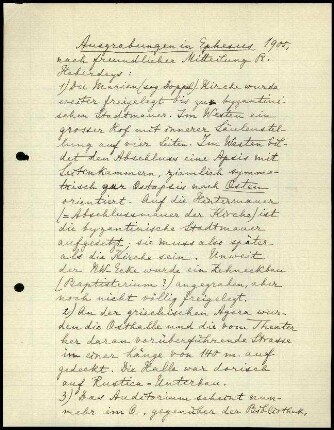 Ausgrabungen in Ephesus 1905,
nach freundlicher Mitteilung R.
Heberdeys:
1) Die Marien/sog Doppel/Kirche wurde
weiter freigelegt bis zur byzantini-
schen Stadtmauer. Im Westen ein
grosser Hof mit innerer Säulenstel-
lung auf vier Seiten. Im Westen bil-
det den Abschluss eine Apsis mit
Seitenkammern, ziemlich symme-
trisch zur Ostapsis nach Osten
orientirt. Auf die Hintermauer
(=Abschlussmauer der Kirche) ist
die byzantinische Stadtmauer
aufgesetzt, sie muss also später
als die Kirche sein. Unweit
der NW Ecke wurde ein Achteckbau
(Baptisterium?) angegraben, aber
noch nicht völlig freigelegt.
2) An der griechischen Agora wur-
den die Osthalle und die vom Theater
her daran vorüberführende Strasse
in einer Länge von 140 m auf-
gedeckt. Die Halle war dorisch
auf Rustica-Unterbau.
3) Das Auditorium scheint nun-
mehr im O. gegenüber der Bibliothek,